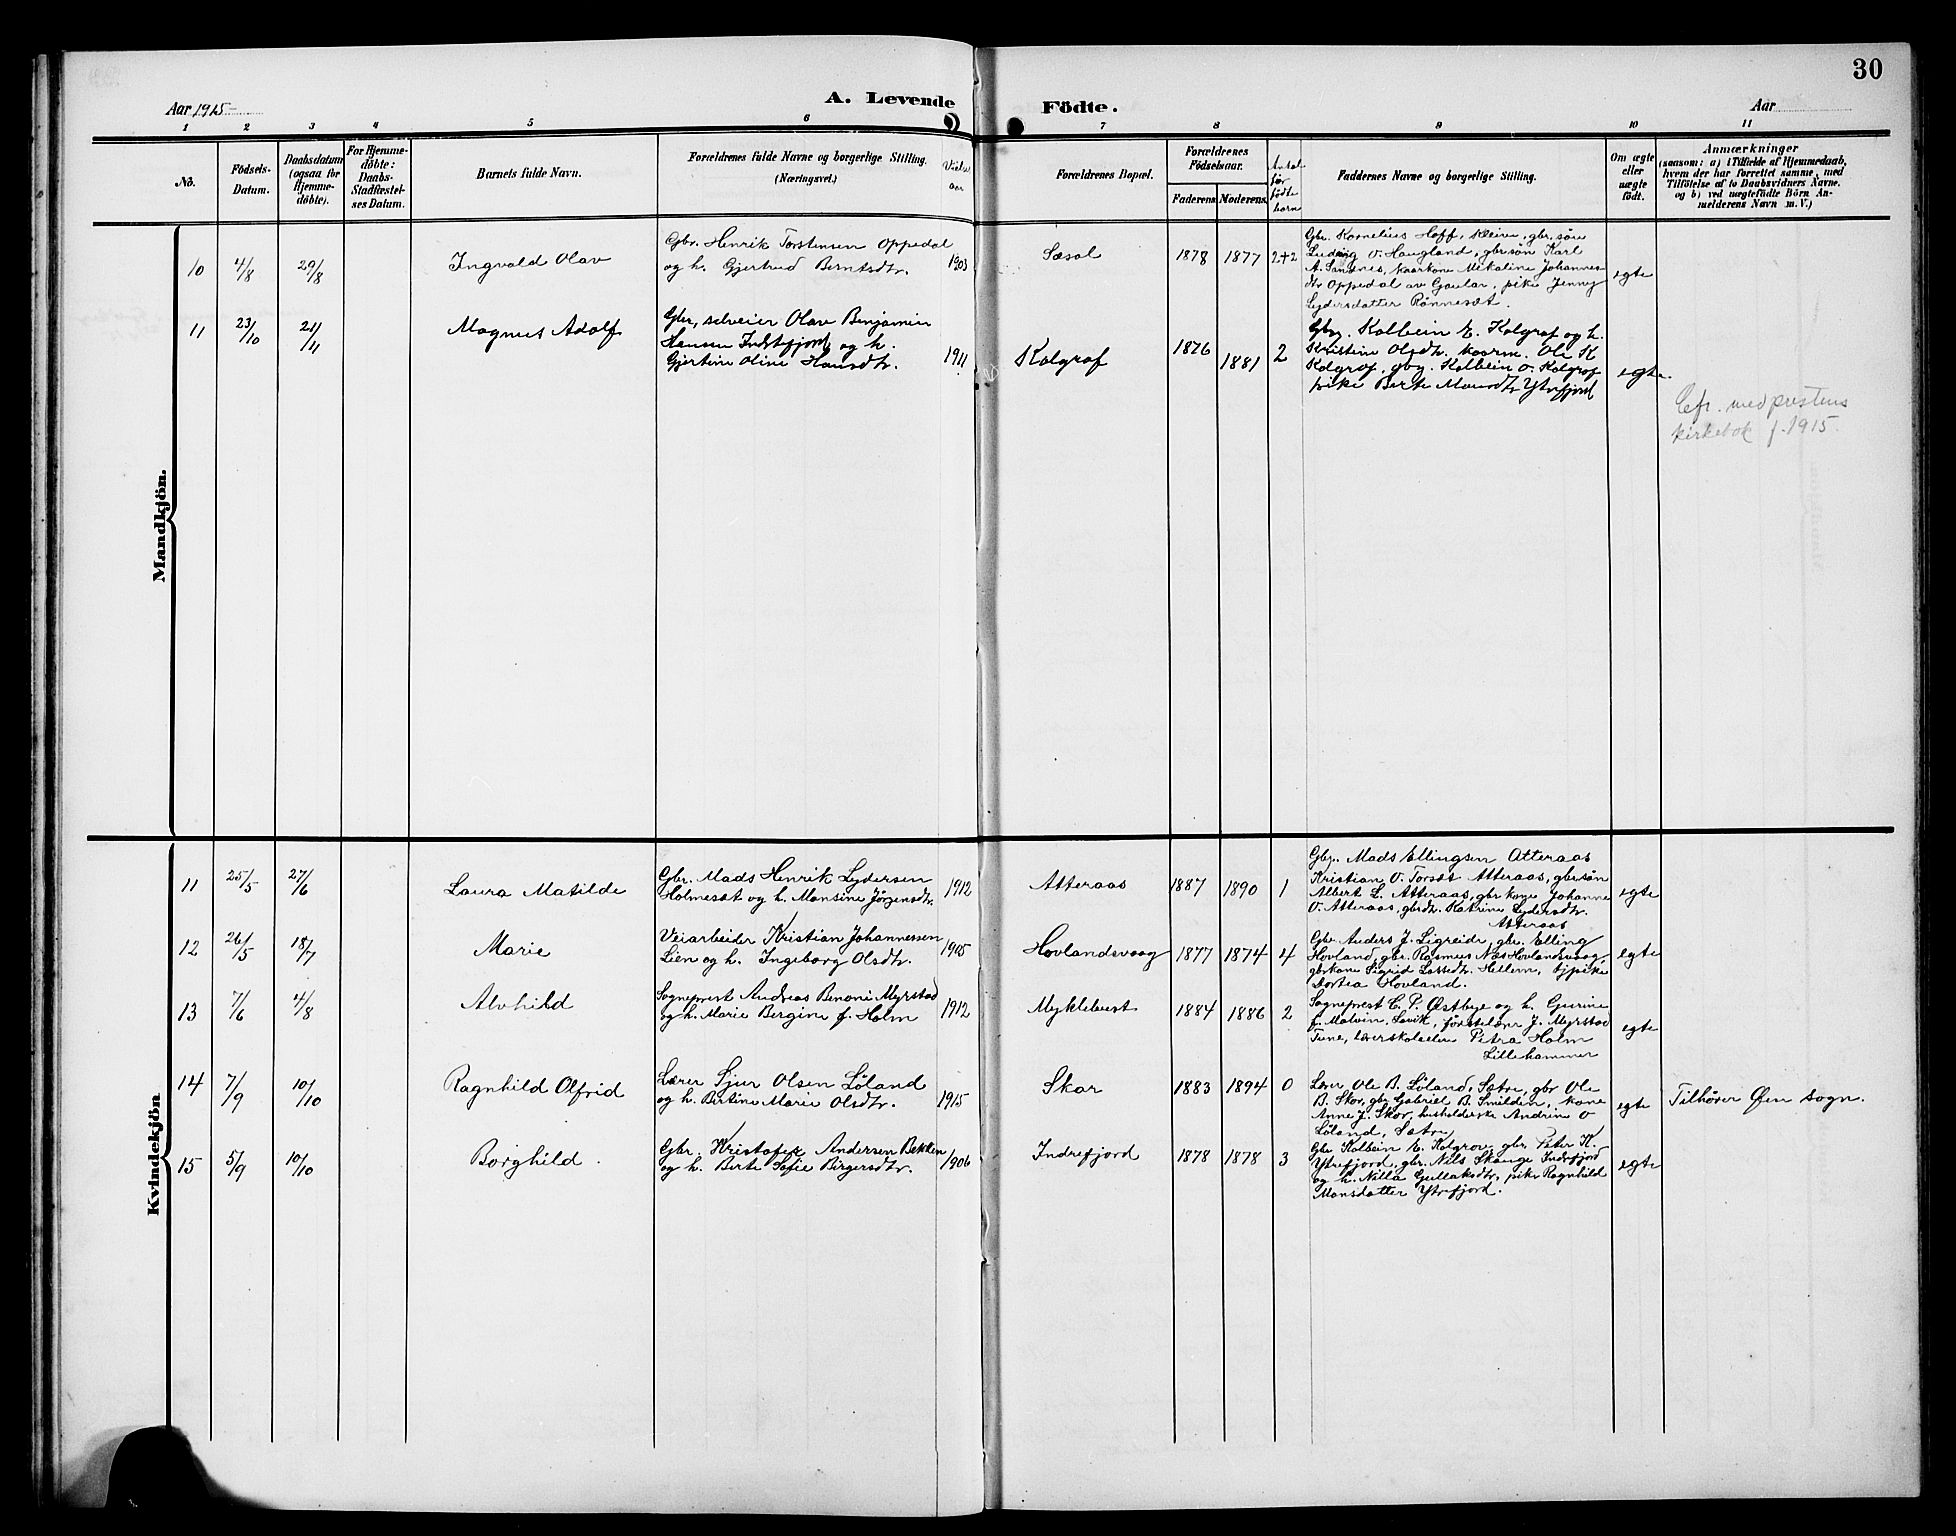 30
Aar 1915
A. Levende
Födte.
Aar
1 2 3 4 5 6 7 8 9 10 11
No.
Födsels-
Datum.
Daabsdatum
(ogsaa for
Hjemme-
döbte).
For Hjemme-
döbte:
Daabs-
Stadfæstel-
ses Datum.
Barnets fulde Navn.
Forældrenes fulde Navne og borgerlige Stilling.
(Næringsvei.)
Vielses
aar
Forældrenes Bopæl.
Forældrenes
Födselsaar.
Faderens. Moderens.
Antal
før
fødte
børn
Faddernes Navne og borgerlige Stilling.
Om ægte
eller
uægte
födt.
Anmærkninger
(saasom: a) i Tilfælde af Hjemmedaab,
hvem der har forrettet samme, med
Tilföielse af to Daabsvidners Navne,
og b) ved uægtefödte Börn An-
melderens Navn m. V.)
Mandkjön.
10 4/8 29/8 Ingvald Olav
Gbr. Henrik Torstensen Oppedal
og h. Gjertrud Berntsdtr. 1903
Sæsol 1878 1877 2+2
Gbr. Kornelius Hoff, Kleive, gbr. søn
Ludvig O. Haugland, gbr søn Karl
A. Sandnes, kaarkone Mikaline Johannes-
dtr Oppedal av Gaular, pike Jenny
Lydersdatter Rønneset.
egte
11 23/10 21/4 Magnus Adolf
Gbr, selveier Olav Benjamin
Hansen Indrefjord og h.
Gjertine Oline Hansdtr. 1911
Kolgraf 1876 1881 2
Gbr. Kolbein E. Kolgraf og h.
Kristine Olsdtr. kaarm. Ole K
Kolgrof, gbr. Kolbein O. Kolgrof
pike Berte Monsdtr Ytrefjord
egte
Cfr. med prestens
kirkebok f. 1915.
Kvindekjön
11 25/5 27/6 Laura Matilde
Gbr. Mads Henrik Lydersen
Holmeset og h. Mansine Jørgensdtr. 1912
Atteraas 1887 1890 1
Gbr. Mads Ellingsen Atteraas
Kristian O. Torset Atteraas, gbr søn
Albert L. Atteraas, gbr kone Johanne
O. Atteraas, gbrdtr. Katrine Lydersdtr.
Atteraas
egte
12 26/5 18/7 Marie
Veiarbeider Kristian Johannessen
Lien og h. Ingeborg Olsdtr. 1905
Hovlandsvaag 1877 1874 4
Gbr Anders J. Ligreide, gbr. Elling
Hovland, gbr. Rasmus Nes Hovlandsvaag,
gbrkone Sigrid Lassedtr. Hellem, tjpike
Dortea Hovland.
egte
13 7/6 4/8 Alvhild
Sogneprest Andreas Benoni Myrstad
og h. Marie Bergine f. Holm 1912
Myklebust 1884 1886 2
Sogneprest C. P. Østbye og h. Gurine
f. Malvin, Savik, førstelærer J. Myrstad
Tune, lærerskoleelev Petra Holm
Lillehammer
egte
14 7/9 10/10 Ragnhild Olfrid
Lærer Sjur Olsen Løland
og h. Bertine Marie Olsdtr. 1915
Skor 1883 1894 0
Lærer Ole B. Løland, Sætre, gbr Ole
B. Skor, gbr Gabriel B. Smilden, kone
Anne J. Skor, husholderske Andrine O
Løland, Sætre
egte
Tilhører Øen sogn.
15 5/9 10/10 Borghild.
Gbr. Kristofer Andersen Bekken
og h. Berte Sofie Birgersdtr. 1906
Indrefjord 1878 1878 3
Gbr Kolbein E. Kolgrov, gbr. Peter K.
Ytrefjord, gbr. Nils Skauge Indrefjord
og h. Nilla Gullaksdtr, pike Ragnhild
Monsdatter Ytrefjord.
egte